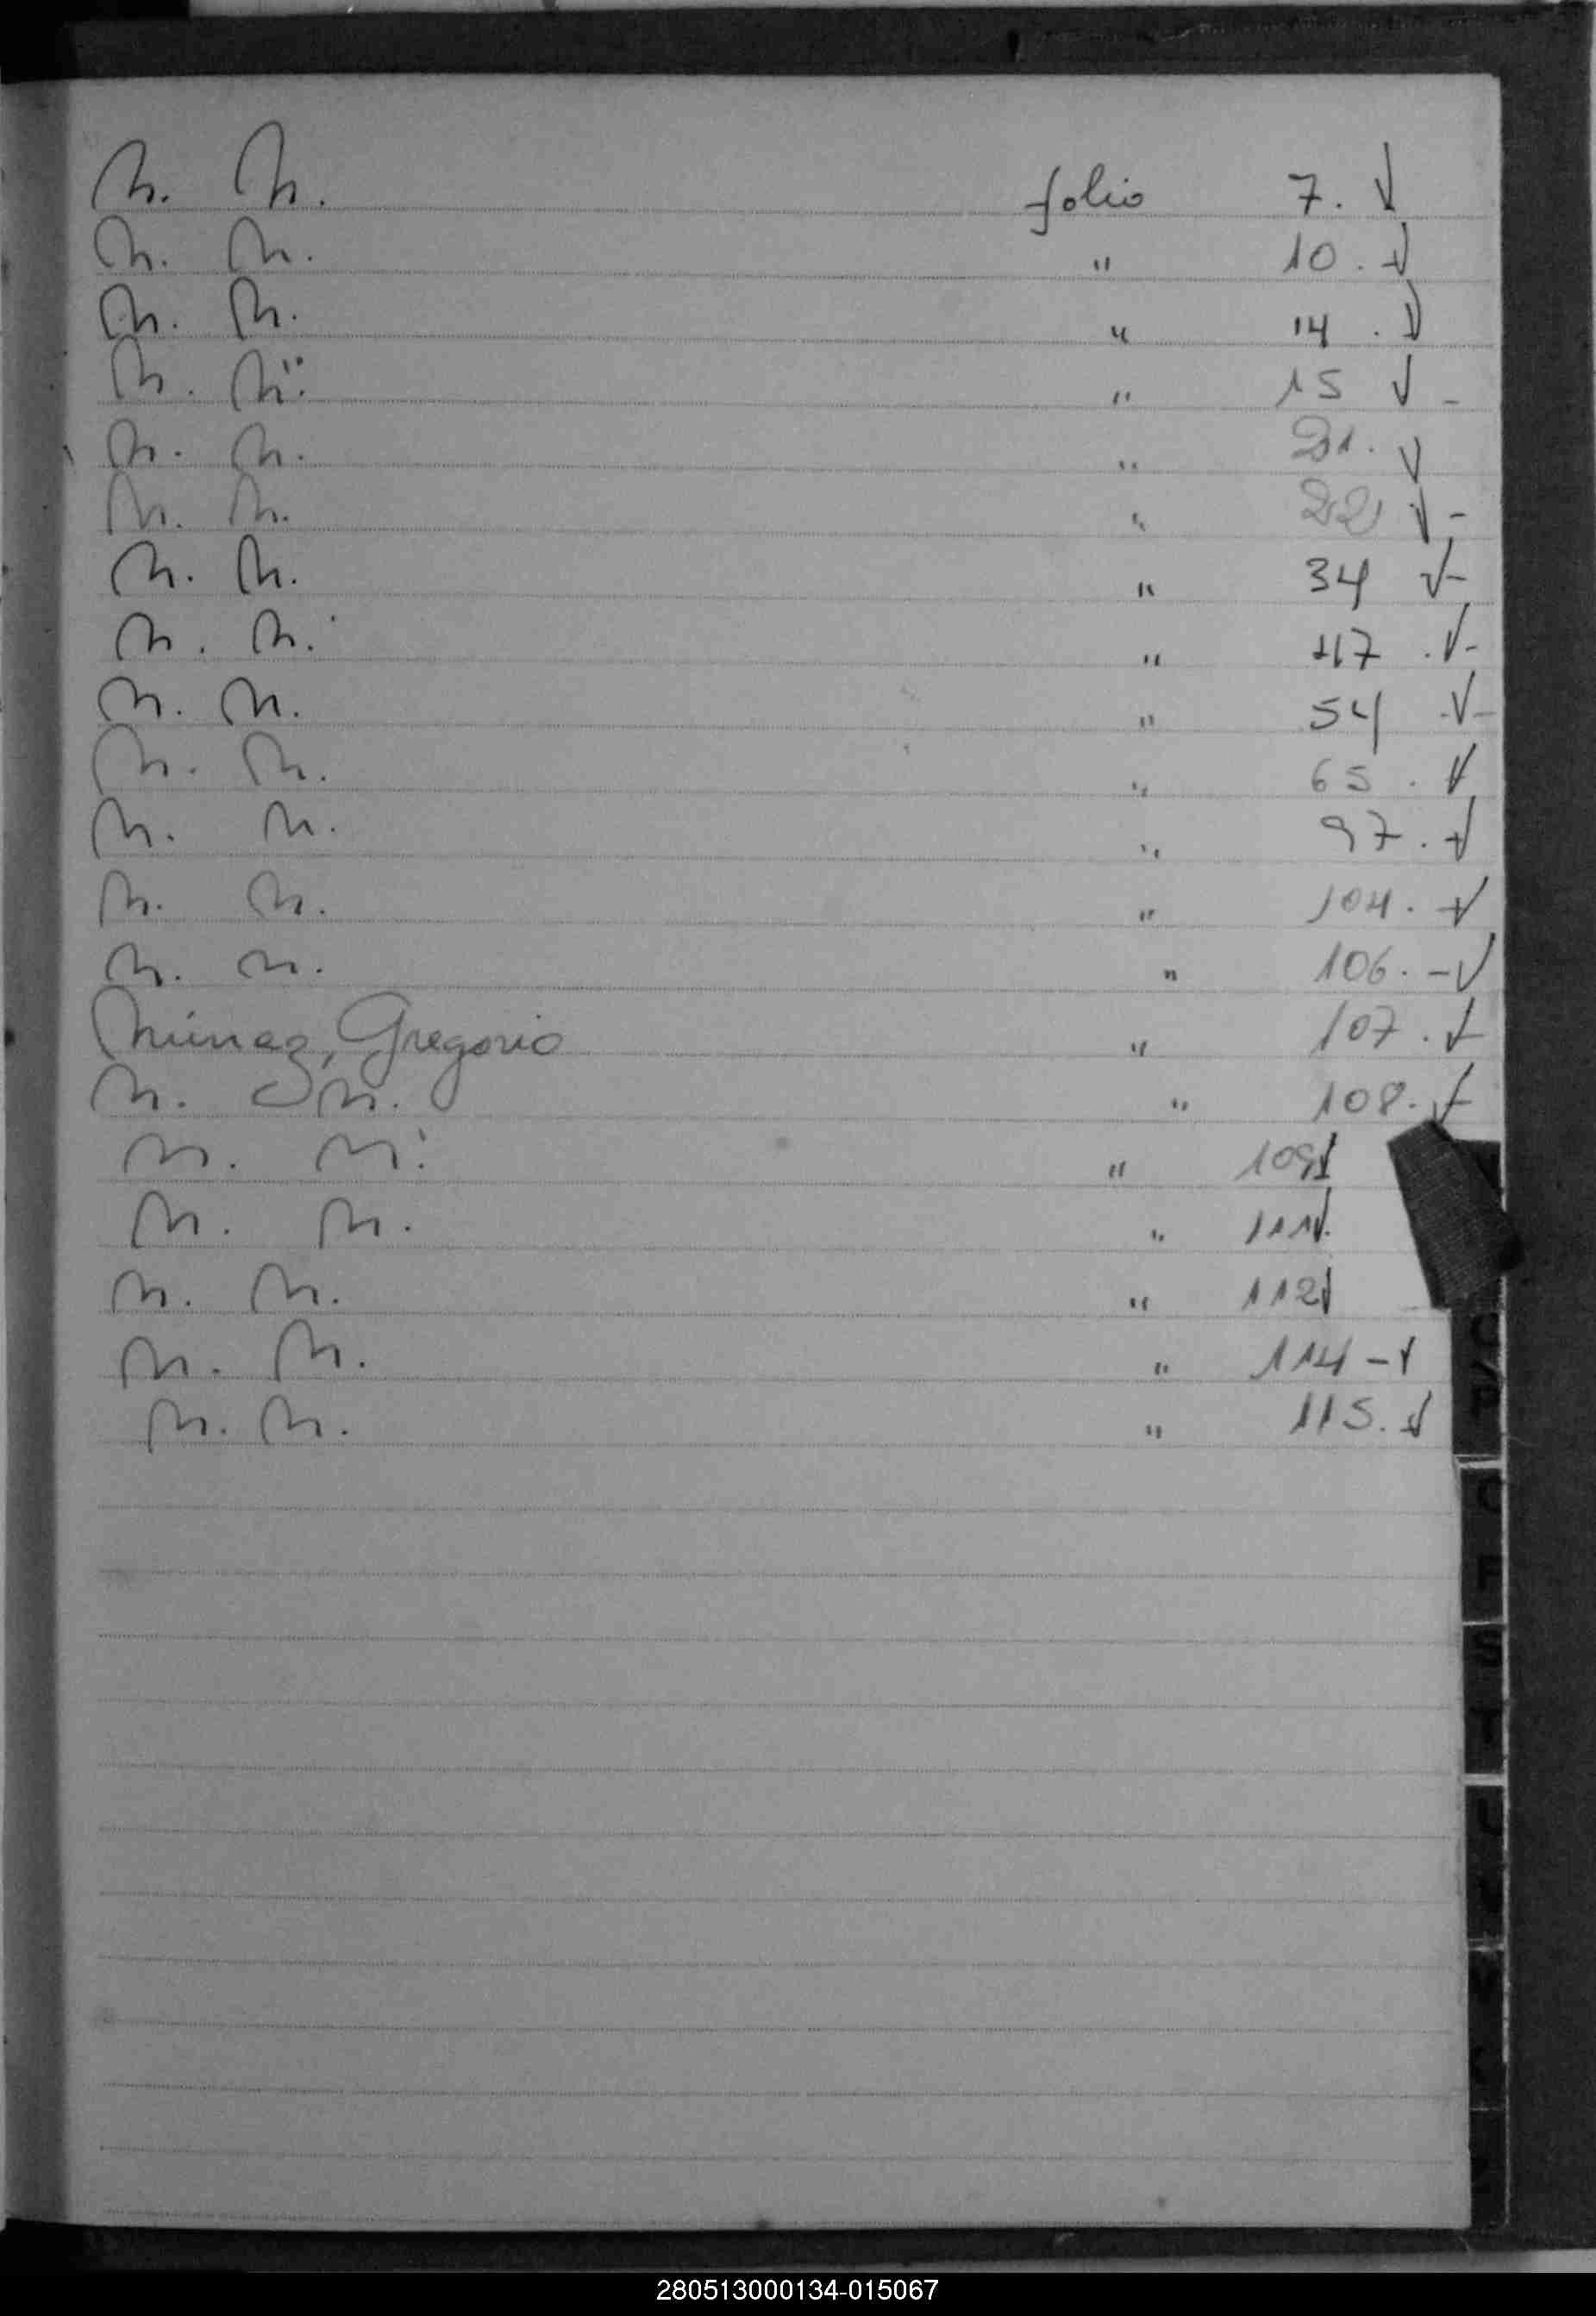 N. N. folio 7. √
N. N. " 10. √
N. N. " 14. √
N. N. " 15 √ -
N. N. " 21. √
N. N. " 22 √ -
N. N. " 34 √-
N. N. " 47. √-
N. N. " 54 -√-
N. N. " 65. √
N. N. " 97. √
N. N. " 104. √
N. N. " 106. -√
Núnez, Gregorio " 107. √
N. N. " 108. √
N. N. " 109 √
N. N. " 111 √.
N. N. " 112 √
N. N. " 114 - √
N. N. " 115. √
S
T
280513000134-015067